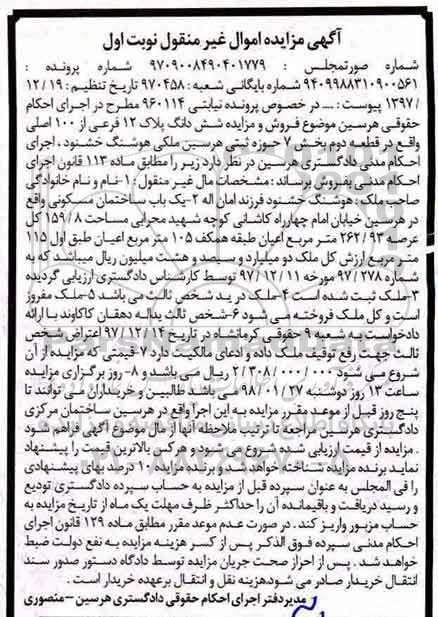 آگهی مزایده اموال غیر منقول نوبت اول
شماره صورتمجلس : ۹۷۰۹۰۰۸۴۹۰۴۰۱۷۷۹ شماره پرونده :
۹۴۰۹۹۸۸۳۱۰۹۰۰۵۶۱ شماره بایگانی شعبه : ۹۷۰۴۵۸ تاریخ تنظیم : ۱۹ / ۱۲
/ ۱۳۹۷ پیوست : ... در خصوص پرونده نیابتی ۹۶۰۱۱۴ مطرح در اجرای احکام
حقوقی هرسین موضوع فروش و مزایده شش دانگ پلاک ۱۲ فرعی از ۱۰۰ اصلی
واقع در قطعه دوم بخش ۷ حوزه ثبتی هرسین ملکی هوشنگ خشنود ، اجرای
احکام مدنی دادگستری هرسین در نظر دارد زیر را مطابق ماده ۱۱۳ قانون اجرای
احکام مدنی بفروش برساند : مشخصات مال غیر منقول : ۱-نام و نام خانوادگی
صاحب ملک : هوشنگ خشنود فرزند امان اله ۲-یک باب ساختمان مسکونی واقع
در هرسین خیابان امام چهارراه کاشانی کوچه شهید محرابی مساحت ۸ / ۱۵۹ کل
عرصه ۹۳ / ۲۶۲ متر مربع اعیان طبقه همکف ۱۰۵ متر مربع اعیان طبق اول ۱۱۵
متر مربع ارزش کل ملک دو میلیارد و سیصد و هشت میلیون ریال میباشد که به
شماره ۲۷۸ / ۹۷ مورخه ۱۱ / ۱۲ / ۹۷ توسط کارشناس دادگستری ارزیابی گردیده
۳-ملک ثبت شده است ۴-ملک در ید شخص ثالث می باشد ۵-ملک مفروز
است و کل ملک فروخته می شود ۶-شخص ثالث یداله دهقان کاکاوند با ارائه
دادخواست به شعبه ۹ حقوقی کرمانشاه در تاریخ ۱۴ / ۱۲ / ۹۷ اعتراض شخص
ثالث جهت رفع توقیف ملک داده و ادعای مالکیت دارد ۷-قیمتی که مزایده از آن
شروع می شود ۰۰۰ / ۰۰۰ / ۳۰۸ / ۲ ریال می باشد و ۸- روز برگزاری مزایده
ساعت ۱۳ روز دوشنبه ۲۷ / ۰۱ / ۹۸ می باشد طالبین و خریداران می توانند تا
پنج روز قبل از موعد مقرر مزایده به این اجرا واقع در هرسین ساختمان مرکزی
دادگستری هرسین مراجعه تا ترتیب ملاحظه آنها از مال موضوع آگهی فراهم شود
. مزایده از قیمت ارزیابی شده شروع می شود و هر کس بالاترین قیمت را پیشنهاد
نماید برنده مزایده شناخته خواهد شد و برنده مزایده ۱۰ درصد بهای پیشنهادی
را فی المجلس به عنوان سپرده قبل از مزایده به حساب سپرده دادگستری تودیع
و رسید دریافت و باقیمانده آن را حداکثر ظرف مهلت یک ماه از تاریخ مزایده به
حساب مزبور واریز کند . در صورت عدم موعد مقرر مطابق ماده ۱۲۹ قانون اجرای
احکام مدنی سپرده فوق الذکر پس از کسر هزینه مزایده به نفع دولت ضبط
خواهد شد . پس از احراز صحت جریان مزایده توسط دادگاه دستور صدور سند
انتقال خریدار صادر می شودهزینه نقل و انتقال برعهده خریدار است .
مدیردفتر اجرای احکام حقوقی دادگستری هرسین-منصوری